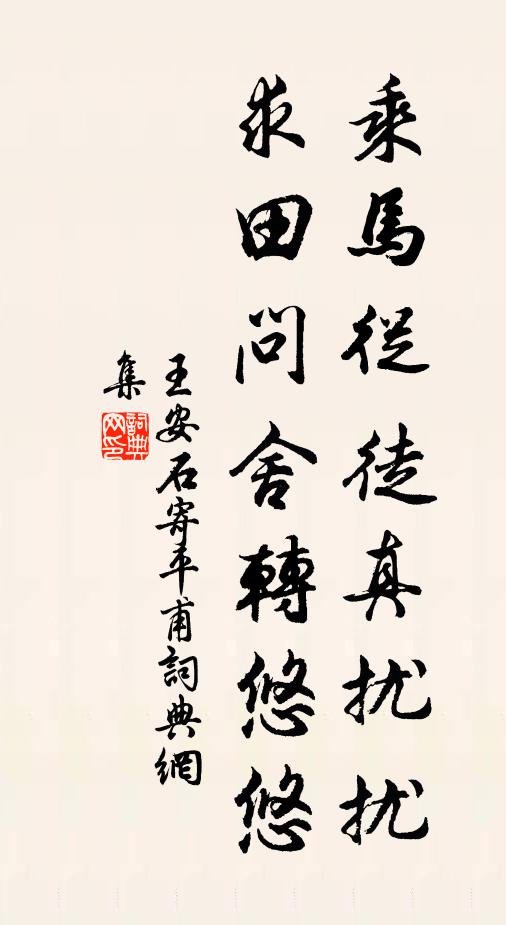 乘馬從徒真扰扰
求田問舍轉悠悠
王安石寄平甫詞典網
集
詞典
网印